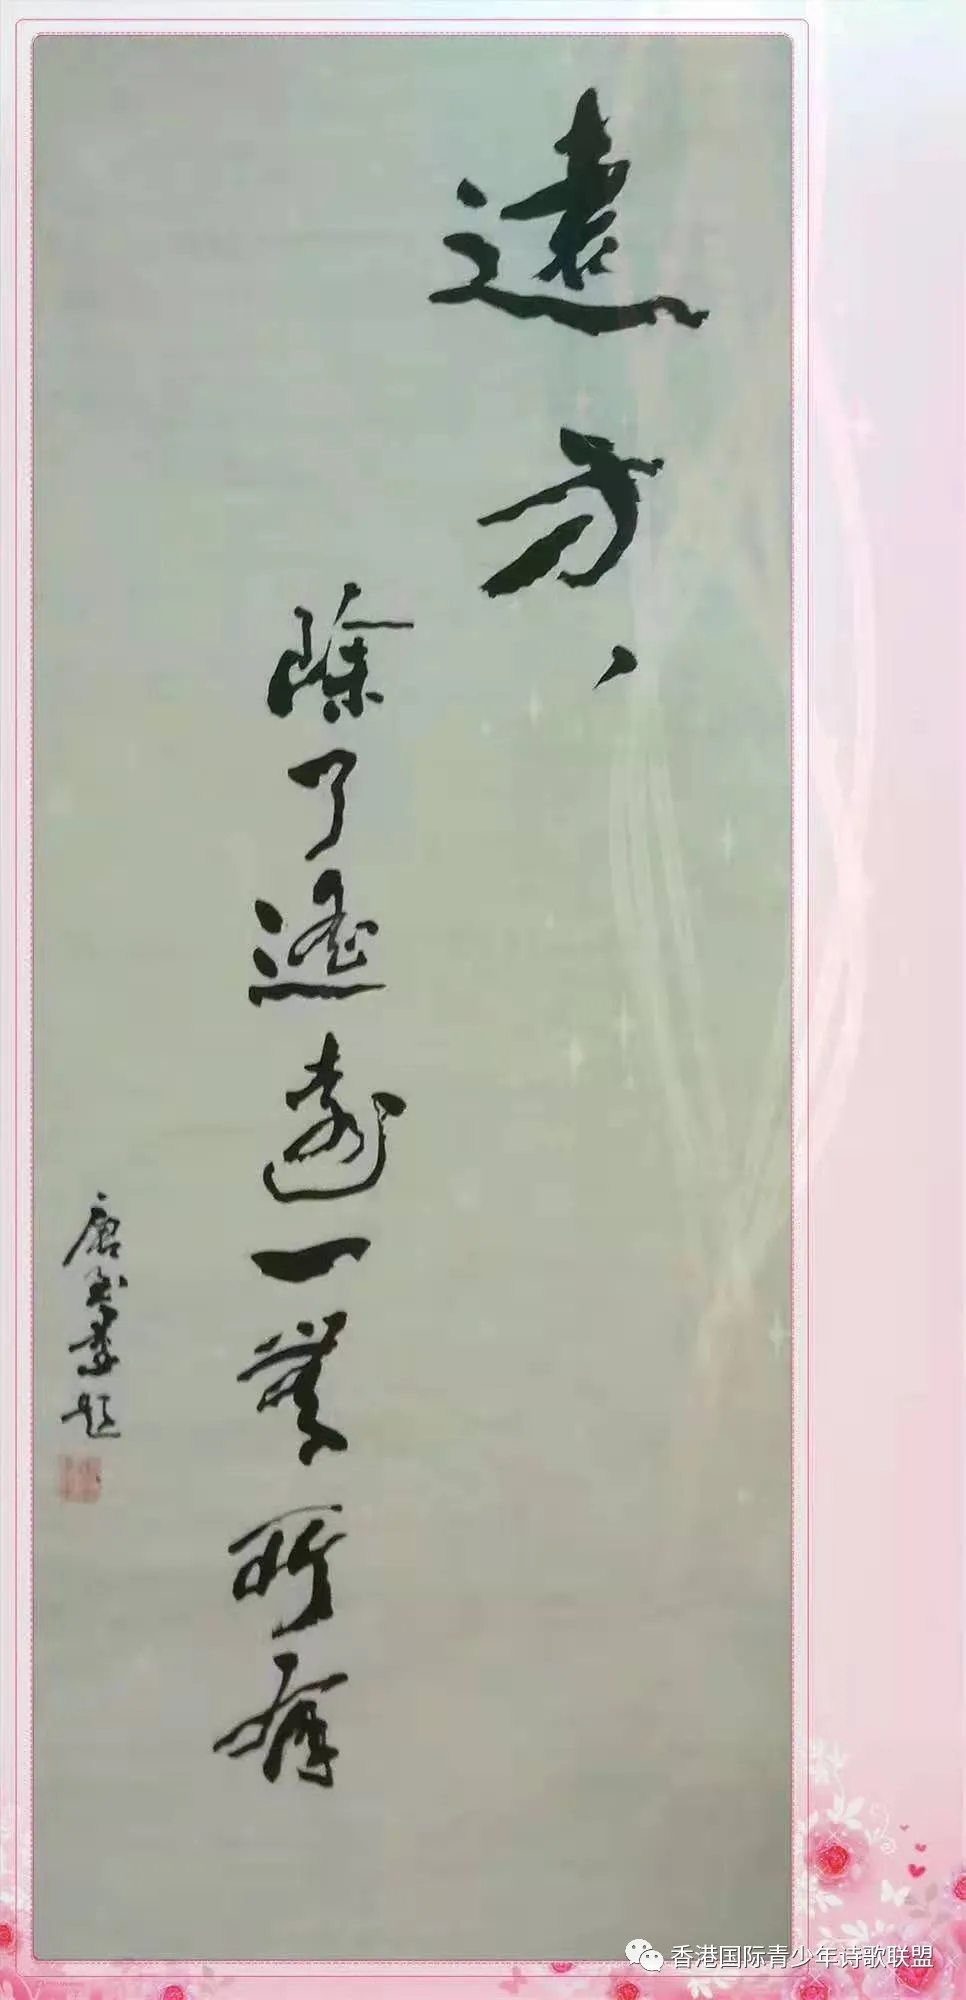 遠方，
除了遥遠一無所有
唐題
香港国际青少年诗歌联盟